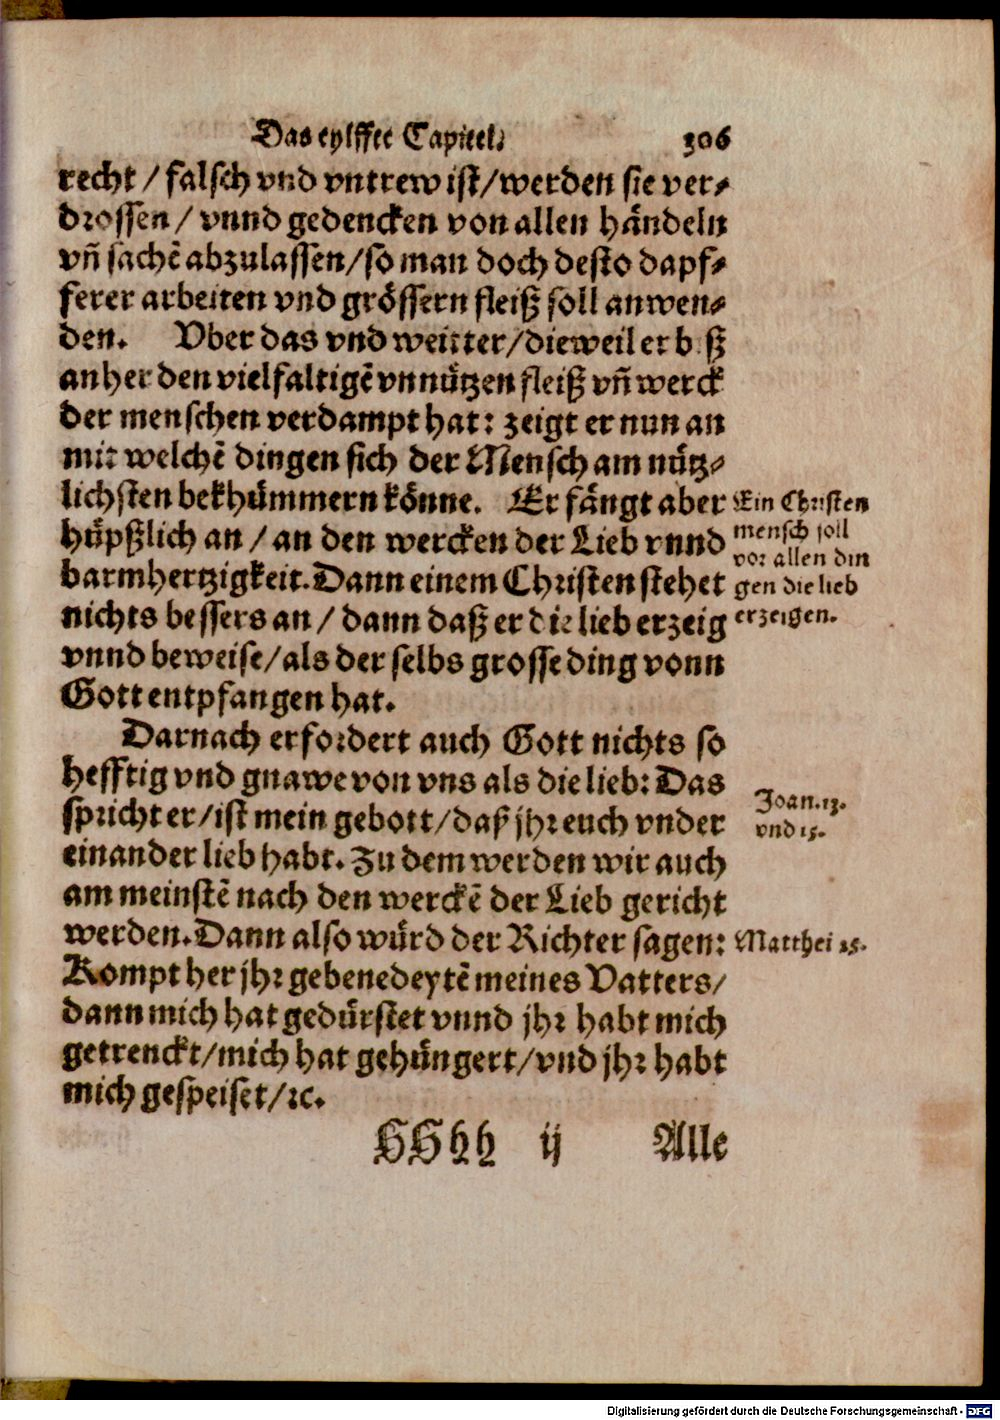 Das eylffte Capitel. 306
recht / falsch vnd vntrew ist/werden sie ver⸗
drossen / vnnd gedencken von allen håndeln
vñ sachẽ abzulassen/so man doch desto dapf⸗
ferer arbeiten vnd grössern fleiß soll anwen⸗
den. Vber das vnd weitter/dieweil er biß
anher den vielfaltigẽ vnnützen fleiß vñ werck
der menschen verdampt hat: zeigt er nun an
mit welchẽ dingen sich der Mensch am nütz⸗
lichsten bekhümmern könne. Er fångt aber
hüpßlich an / an den wercken der Lieb vnnd
barmhertzigkeit. Dann einem Christen stehet
nichts bessers an / dann daß er die lieb erzeig
vnnd beweise/als der selbs grosse ding vonn
Gott entpfangen hat.
Ein Christen
mensch soll
vor allen din
gen die lieb
erzeigen.
Darnach erfordert auch Gott nichts so
hefftig vnd gnawe von vns als die lieb: Das
spricht er/ist mein gebott/daß jhr euch vnder
einander lieb habt. Zu dem werden wir auch
am meinstẽ nach den werckẽ der Lieb gericht
werden. Dann also würd der Richter sagen:
Kompt her jhr gebenedeytẽ meines Vatters/
dann mich hat gedürstet vnnd jhr habt mich
getrenckt/mich hat gehüngert/vnd jhr habt
mich gespeiset/ꝛc.
Joan. 13.
vnd 15.
Matthei 25.
HHhh ij Alle
Digitalisierung gefördert durch die Deutsche Forschungsgemeinschaft - DFG